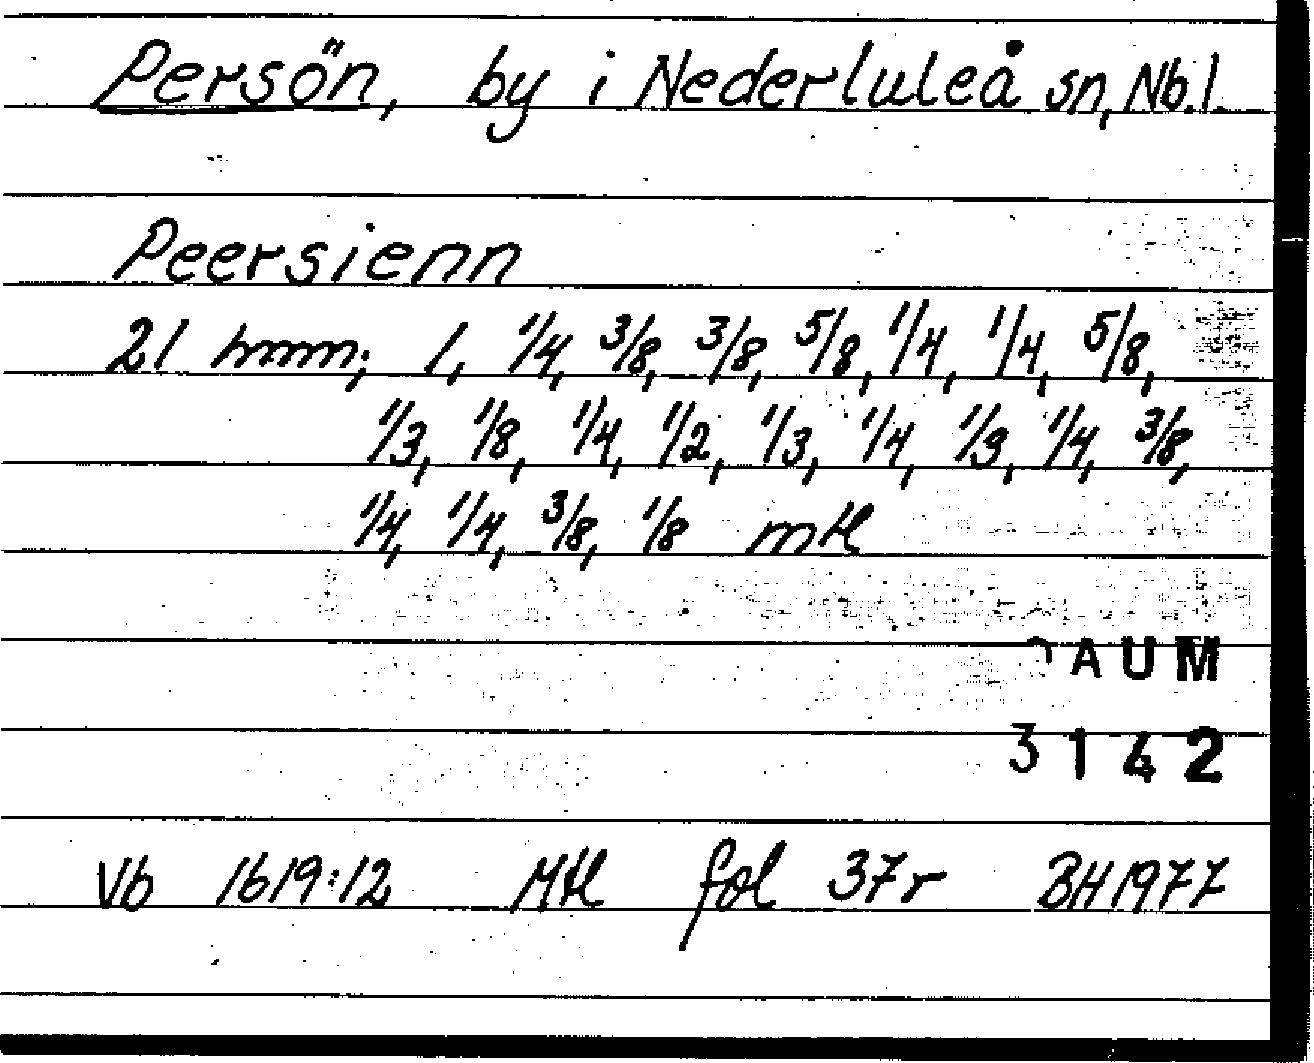 Persön, by i Nederluleå sn, Nb. l.
Peersienn
21 hmm; 1, 1/4, 3/8, 3/8, 5/8, 1/4, 1/4, 5/8,
1/3, 1/8, 1/4, 1/2, 1/3, 1/4, 1/3, 1/4, 3/8,
1/4, 1/4, 3/8, 1/8 mtl
DAUM
3142
Vb 1619:12 Mtl fol 37r BH1977